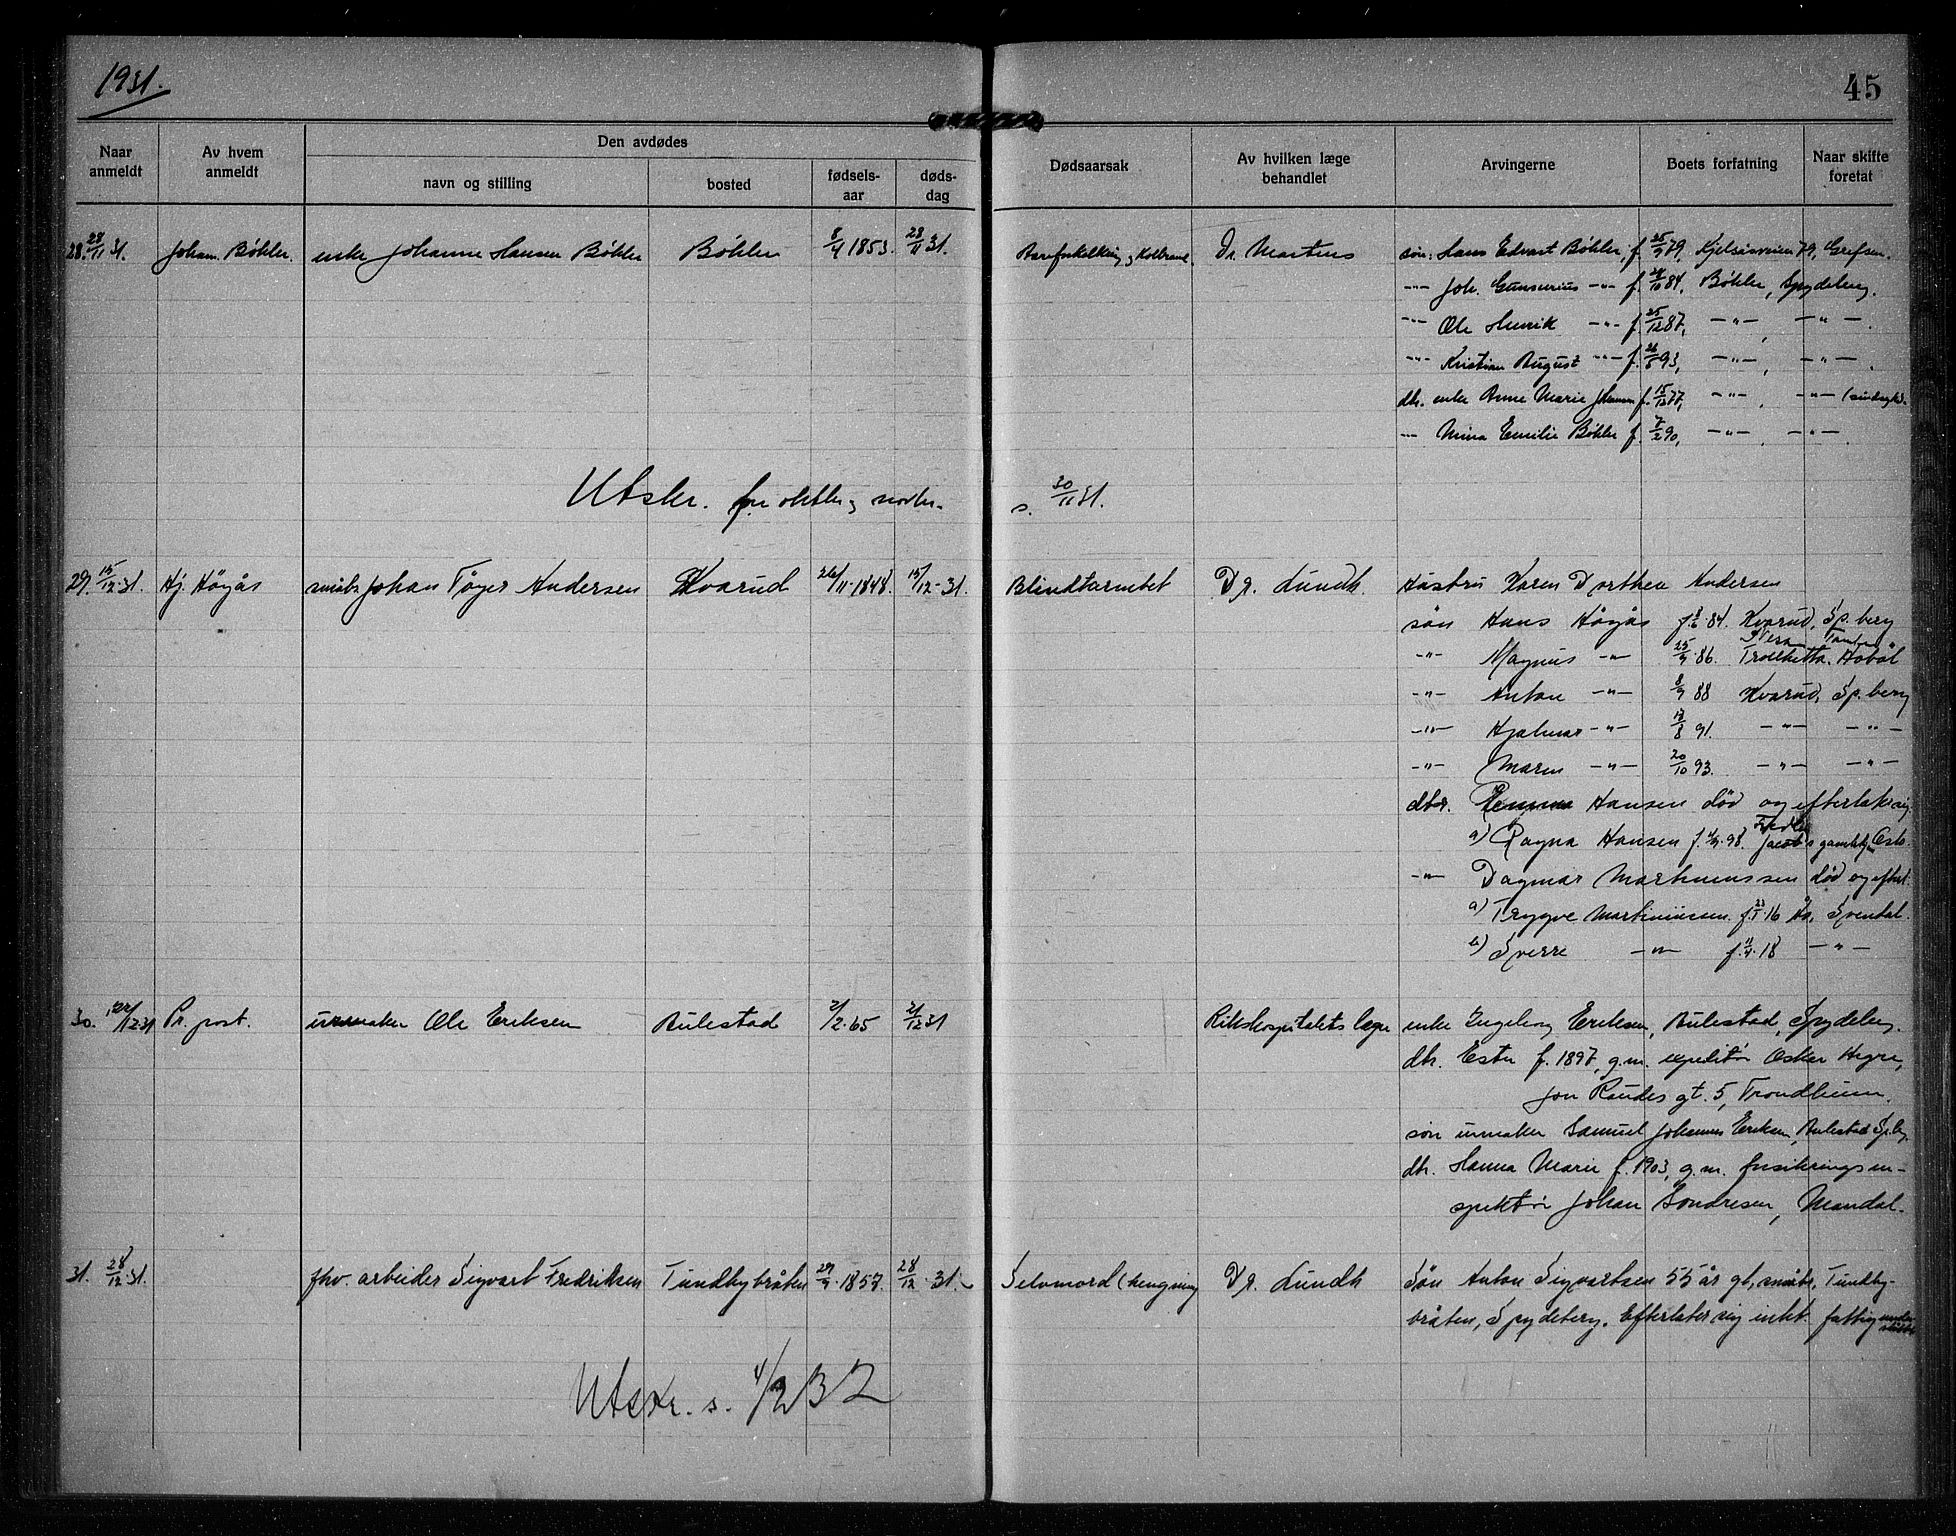 1931.
45
Naar anmeldt
Av hvem anmeldt
Den avdødes
navn og stilling
bosted
fødsels-aar
døds-dag
Dødsaarsak
Av hvilken læge behandlet
Arvingerne
Boets forfatning
Naar skifte foretat
28. 28/11 31. Johan. Bøhler. enke Johanne Hansen Bøhler Bøhler 8/4 1853. 28/11 31. Aareforkalkning og Koldbrand. Dr. Martens søn: Hans Edvart Bøhler, f. 79, Kjelsåsveien 79, Grefsen.
-"- Joh. Gunnerius -"- f. 84, Bøhler, Spydeberg.
-"- Ole Henrik -"- f. 25/12 87, -"-, -"-.
-"- Kristian August -"- f. 93, -"-, -"-.
dtr. enke Anne Marie Johansen f. 15/12 77, -"-, -"-
-"- Mina Emilie Bøhler f. 7/2 90, -"-, -"-.
Utskr. for oktbr. og novbr. s. 30/11 31.
29. 15/12. 31. Hj. Högås småbr. Johan Töger Andersen Kvarud 26/11. 1848. 15/12. 31. Blindtarmbet Dr. Lundh. Hustru Karen Dorthea Andersen
sön Hans Högås f. 84. Kvarud, Sp.berg
-"- Magnus -"- 86. Trollhetta. Hobøl
-"- Anton -"- 88 Kvarud, Sp.berg
-"- Hjalmar -"- 91. -"- -"-
-"- Maren -"- 20/10 93. -"- -"-
dtr. Hansen död og efterlat sig
a) Ragna Hansen f. 98. Jacobs Oslo.
-"- Dagmar Martinussen död og efterl.
a) Trygve Martiniussen. f. 16 Ås, Svendal.
b) Sverre -"- f. 18 -"-
30. 22/12 31 Pr. post. urmaker Ole Eriksen Aulestad 2/2. 65 2/12 31 Rikshospitalets læger enke Ingeborg Eriksen, Aulestad, Spydeberg.
dtr. Ester f. 1897, g.m. expeditør Oskar Hegre,
Jon Raudes gt. 5, Trondheim.
søn urmaker Samuel Johannes Eriksen, Aulestad Spbg.
dtr. Hanna Marie f. 1903, g.m. forsikringsin-
spektør Johan Sondresen, Mandal.
31. 28/12. 31. fhv. arbeider Sigvart Fredriksen Tundbybråten 29/9. 1857. 28/12. 31. Selvmord (hengning Dr. Lundh Sön Anton Sigvartsen 55 år gl, småbr, Tundby-
bråten, Spydeberg. Efterlater sig intet. fattigunderstöttet
Utskr. s. 4/2 32